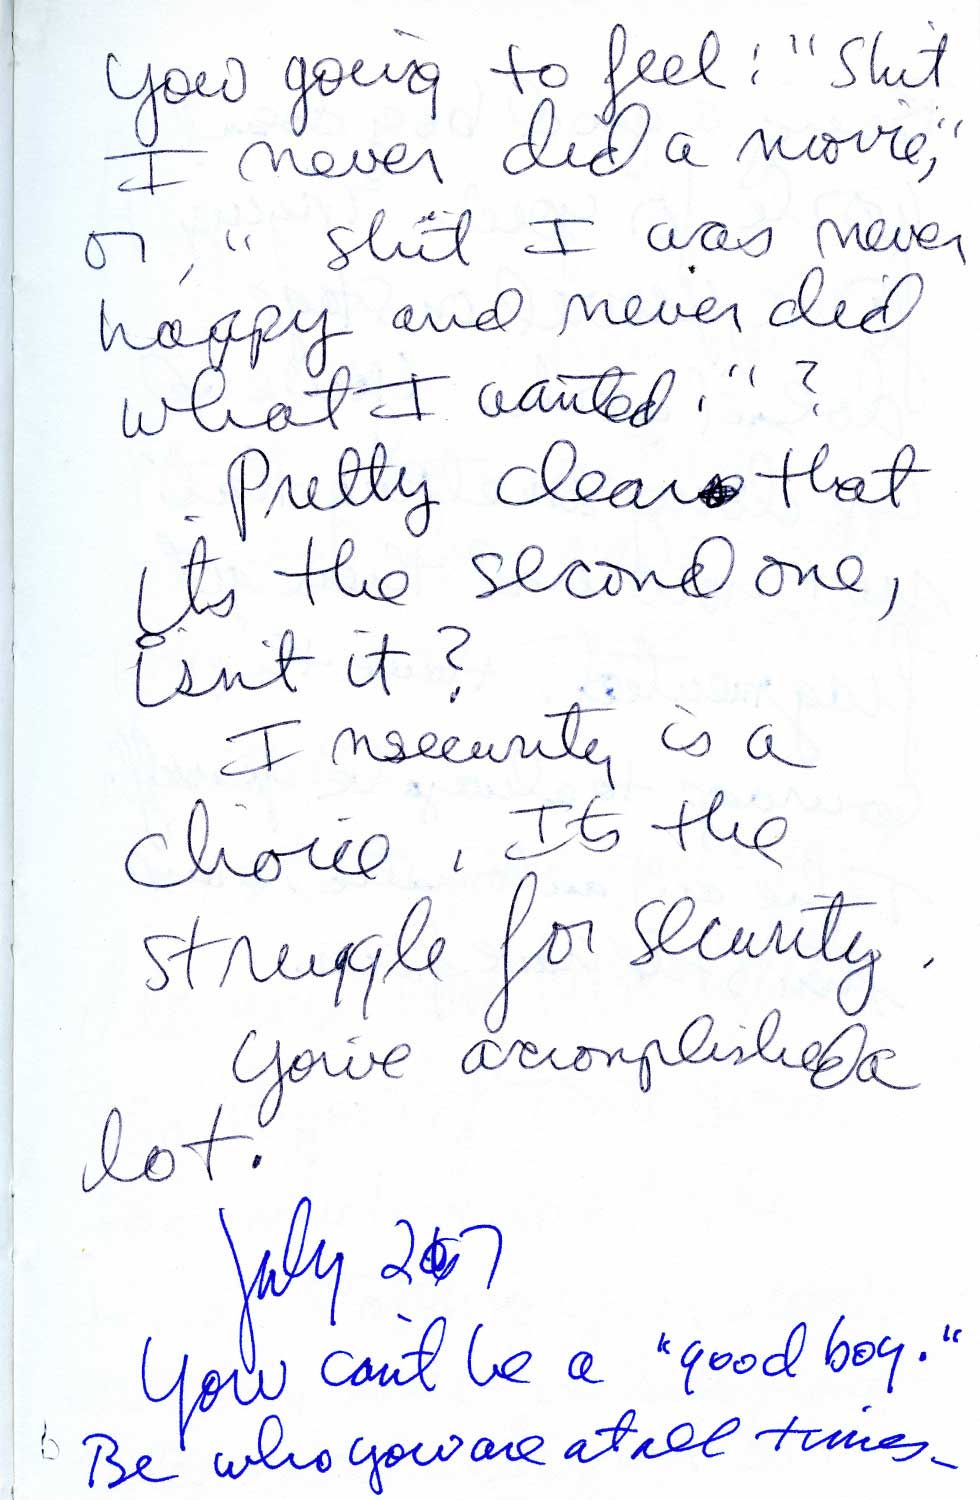 you going to feel: "Shit
I never did a movie,"
or, "shit I was never
happy and never did
what I wanted."?
Pretty clear that
its the second one,
isn't it?
Insecurity is a
choice. Its the
struggle for security.
You've accomplished a
lot.
July 2007
You can't be a "good boy."
Be who you are at all times.